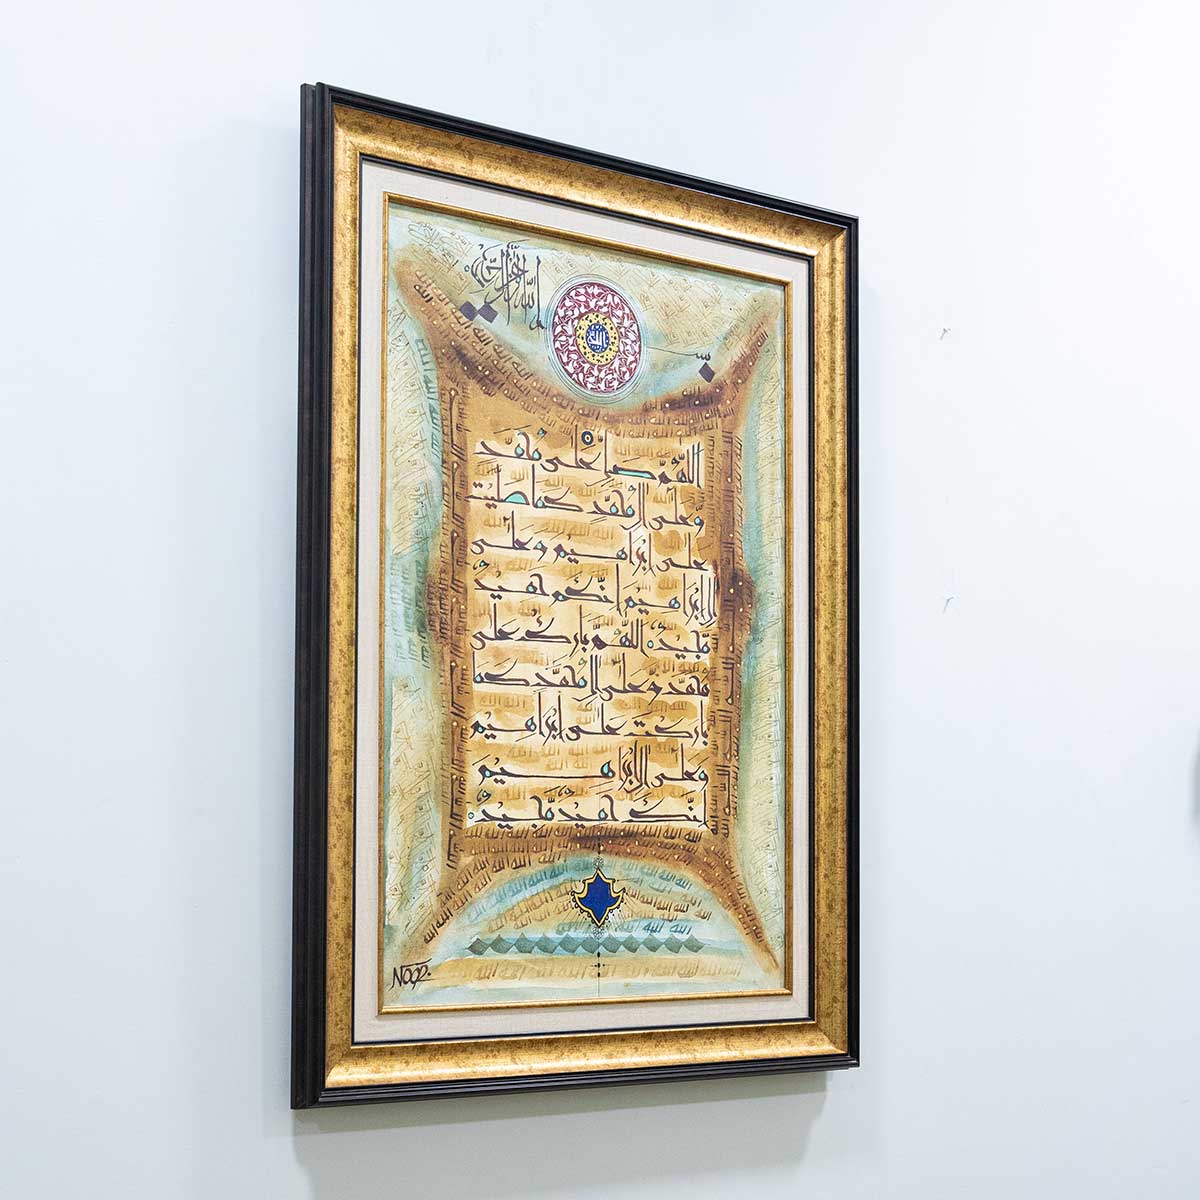 بسم الله الرحمن الرحيم
الله
اللّهمّ صلّ على محمّد
وّعلى ال محمّدٍ كما صليت
على إبراهيم وعلى
ال ابراهيم انّك حميدٌ
مّجيدٌ اللّهمّ بارك على
محمّدٍ وّعلى ال محمّدٍ كما
باركت على إبراهيم
وعلى ال ابراهيم
انّك حميدٌ مّجيدٌ
NOOR.